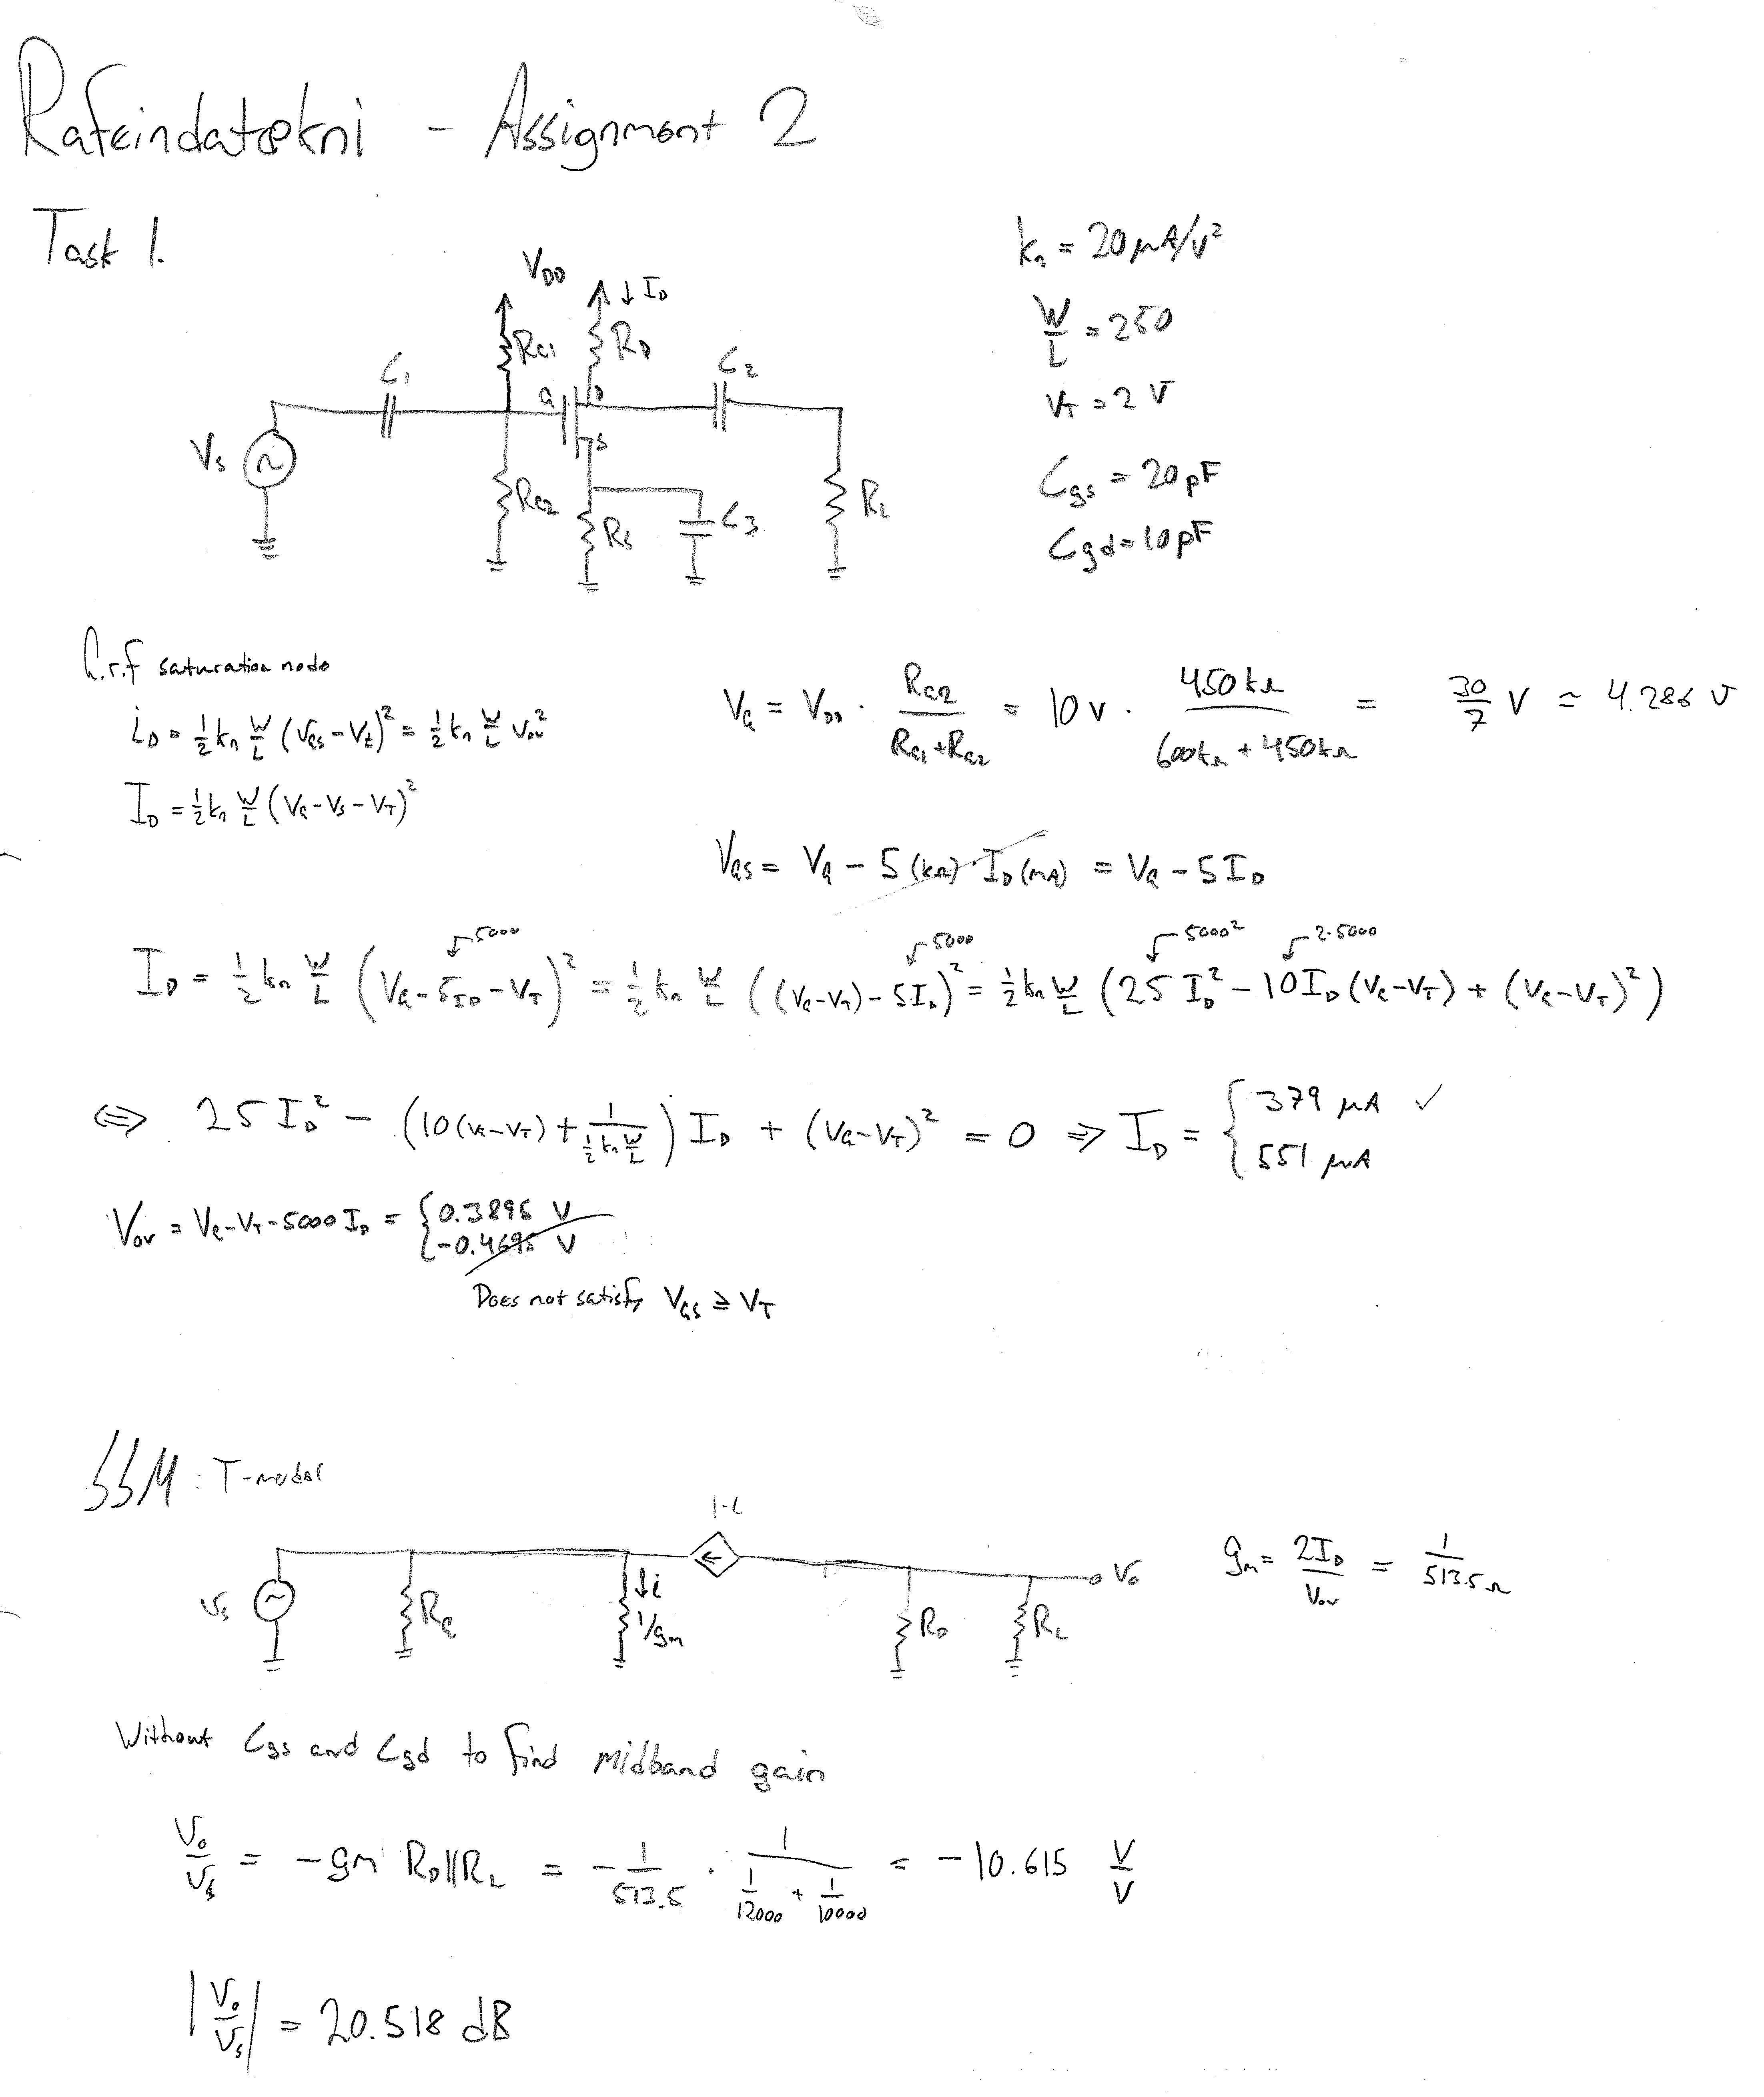 Rafeindatækni - Assignment 2
Task 1.
V_DD
↓ I_D
R_G1
R_D
C_1
C_2
G
D
S
V_s
R_G2
R_s
C_3
R_L
k_n = 20 μA/V²
W/L = 250
V_T = 2 V
C_gs = 20 pF
C_gd = 10 pF
G.r.f saturation mode
i_D = 1/2 k_n W/L (V_GS - V_t)² = 1/2 k_n W/L V_ov²
I_D = 1/2 k_n W/L (V_G - V_S - V_T)²
V_G = V_DD · R_G2/(R_G1 + R_G2) = 10 V · 450 kΩ/(600 kΩ + 450 kΩ) = 30/7 V ≃ 4.286 V
V_GS = V_G - 5 (kΩ) I_D (mA) = V_G - 5 I_D
5000
5000
5000²
2·5000
I_D = 1/2 k_n W/L (V_G - 5I_D - V_T)² = 1/2 k_n W/L ((V_G - V_T) - 5I_D)² = 1/2 k_n W/L (25 I_D² - 10 I_D (V_G - V_T) + (V_G - V_T)²)
⇔ 25 I_D² - (10(V_G - V_T) + 1/(1/2 k_n W/L)) I_D + (V_G - V_T)² = 0 ⇒ I_D = { 379 μA ✓
551 μA
V_ov = V_G - V_T - 5000 I_D = { 0.3895 V
-0.4695 V
Does not satisfy V_GS ≥ V_T
SSM: T-model
1·i
V_s
R_G
↓i
1/g_m
R_D
R_L
V_o
g_m = 2I_D/V_ov = 1/513.5 Ω
Without C_gs and C_gd to find midband gain
V_o/V_s = -g_m R_D||R_L = - 1/513.5 · 1/(1/12000 + 1/10000) = -10.615 V/V
|V_o/V_s| = 20.518 dB